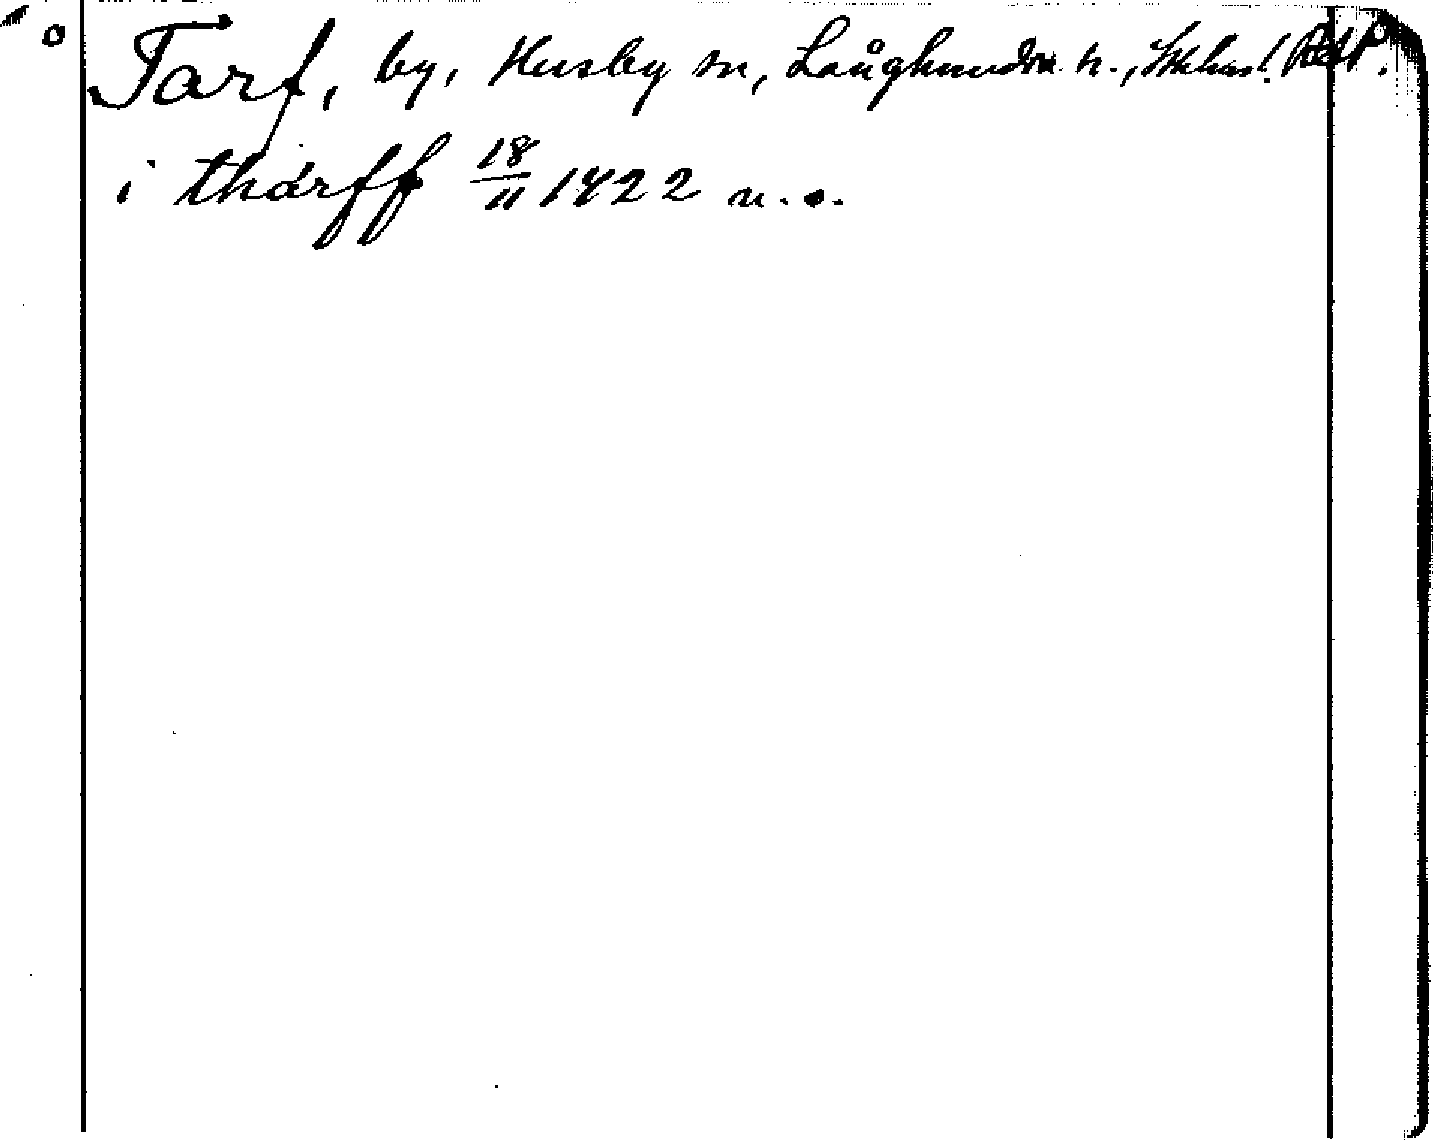 Tarf, by, Husby sn, Långhundra h., Sthlms l. RAP.
i thárff 18/11 1422 n. o.